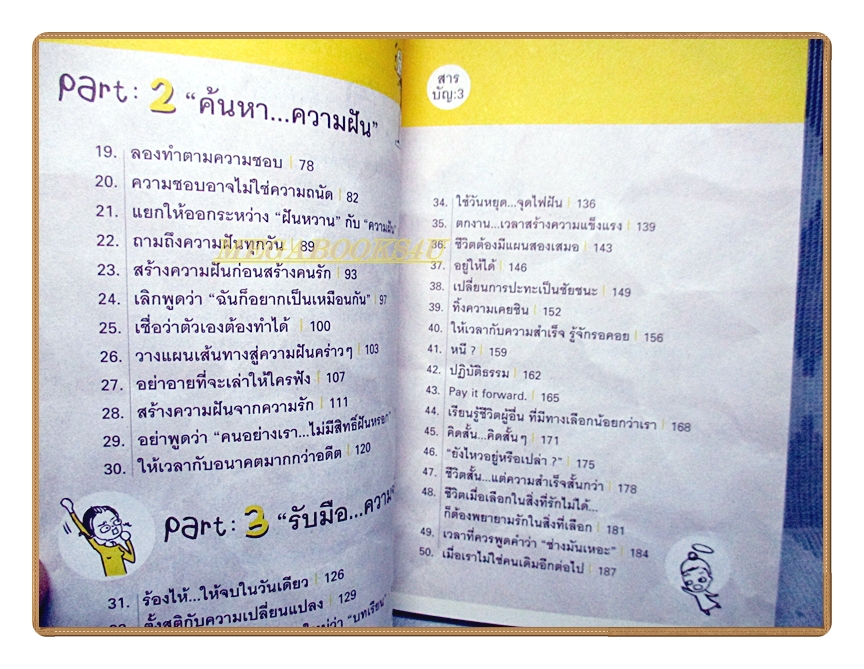 Part: 2 “ค้นหา...ความฝัน”
19. ลองทำตามความชอบ | 78
20. ความชอบอาจไม่ใช่ความถนัด | 82
21. แยกให้ออกระหว่าง “ฝันหวาน” กับ “ความฝัน”
22. ถามถึงความฝันทุกวัน 89
23. สร้างความฝันก่อนสร้างคนรัก | 93
24. เลิกพูดว่า “ฉันก็อยากเป็นเหมือนกัน” | 97
25. เชื่อว่าตัวเองต้องทำได้ | 100
26. วางแผนเส้นทางสู่ความฝันคร่าวๆ | 103
27. อย่าอายที่จะเล่าให้ใครฟัง | 107
28. สร้างความฝันจากความรัก | 111
29. อย่าพูดว่า “คนอย่างเรา...ไม่มีสิทธิ์ฝันหรอก”
30. ให้เวลากับอนาคตมากกว่าอดีต | 120
Part: 3 “รับมือ...ความ
31. ร้องไห้...ให้จบในวันเดียว | 126
ตั้งสติกับความเปลี่ยนแปลง | 129
ว่า “บทเรียน”
สาร
บัญ:3
34. ใช้วันหยุด...จุดไฟฝัน | 136
35. ตกงาน...เวลาสร้างความแข็งแรง | 139
36. ชีวิตต้องมีแผนสองเสมอ | 143
37. อยู่ให้ได้ | 146
38. เปลี่ยนการปะทะเป็นชัยชนะ | 149
39. ทิ้งความเคยชิน | 152
40. ให้เวลากับความสำเร็จ รู้จักรอคอย | 156
41. หนี ? | 159
42. ปฏิบัติธรรม | 162
43. Pay it forward. | 165
44. เรียนรู้ชีวิตผู้อื่น ที่มีทางเลือกน้อยกว่าเรา | 168
45. คิดสั้น...คิดสั้นๆ | 171
46. “ยังไหวอยู่หรือเปล่า ?” | 175
47. ชีวิตสั้น...แต่ความสำเร็จสั้นกว่า | 178
48. ชีวิตเมื่อเลือกในสิ่งที่รักไม่ได้...
ก็ต้องพยายามรักในสิ่งที่เลือก | 181
49. เวลาที่ควรพูดคำว่า “ช่างมันเหอะ” | 184
50. เมื่อเราไม่ใช่คนเดิมอีกต่อไป | 187
MEGABOOKS4U